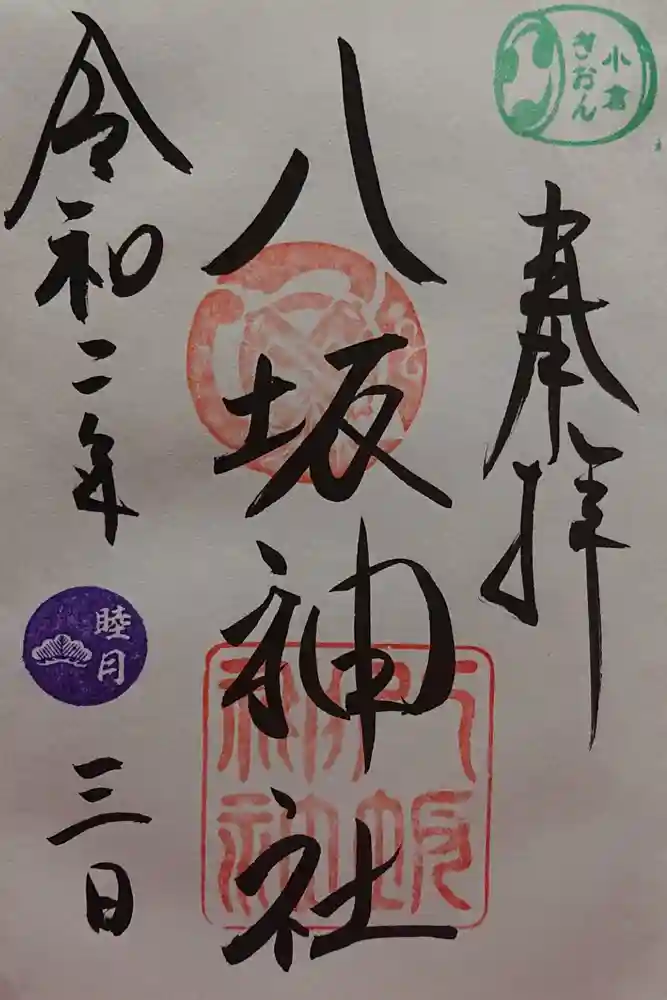 小倉
ぎおん
奉拝
八坂神社
八坂
神社
令和二年
睦月
三日